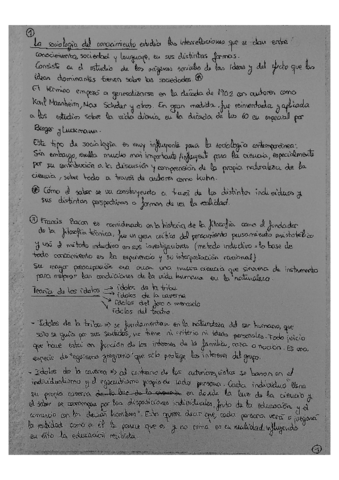 ①
La sociología del conocimiento estudia las interrelaciones que se dan entre
conocimiento, sociedad y lenguaje, en sus distintas formas.
Consiste en el estudio de los orígenes sociales de las ideas y del efecto que las
ideas dominantes tienen sobre las sociedades
El término empezó a generalizarse en la década de 1920 con autores como
Karl Mannheim, Max Scheler y otros. En gran medida, fue reorientada y aplicada
a los estudios sobre la vida diaria, en la década de los 60 en especial por
Berger y Luckmann.
Este tipo de sociología es muy influyente para la sociología contemporánea.
Sin embargo, resulta mucho más importante/influyente para la ciencia, especialmente
por su contribución a la discusión y comprensión de la propia naturaleza de la
ciencia, sobre todo a través de autores como Kuhn.
Cómo el saber se va construyendo a través de los distintos individuos y
sus distintas perspectivas o formas de ver la realidad.
Francis Bacon es considerado en la historia de la filosofía como el fundador
de la filosofía técnica, fue un gran crítico del pensamiento aristotélico
y usó el método inductivo en sus investigaciones (método inductivo → la base de
todo conocimiento es la experiencia y su interpretación racional)
Su mayor preocupación era crear una nueva ciencia que sirviera de instrumento
para mejorar las condiciones de la vida humana en la naturaleza
Teoría de los ídolos → ídolos de la tribu
ídolos de la caverna
ídolos del foro o mercado
ídolos del teatro
- Ídolos de la tribu: se fundamentan en la naturaleza del ser humano, que
solo se guía por sus sentidos, no tiene ni criterio ni ideas personales. Todo juicio
que hace está en función de los intereses de la familia, raza o nación. Es una
especie de "egoísmo gregario" que sólo protege los intereses del grupo.
- Ídolos de la caverna
individualismo y el egocentrismo propio de cada persona. Cada individuo tiene
su propia caverna en donde la luz de la ciencia y
el saber se corrompe por las disposiciones individuales, fruto de la educación y el
comercio con los demás hombres. Esto quiere decir que, cada persona verá o juzgará
la realidad como a él le parece que es y no como en realidad, influyendo
en ello la educación recibida.
①